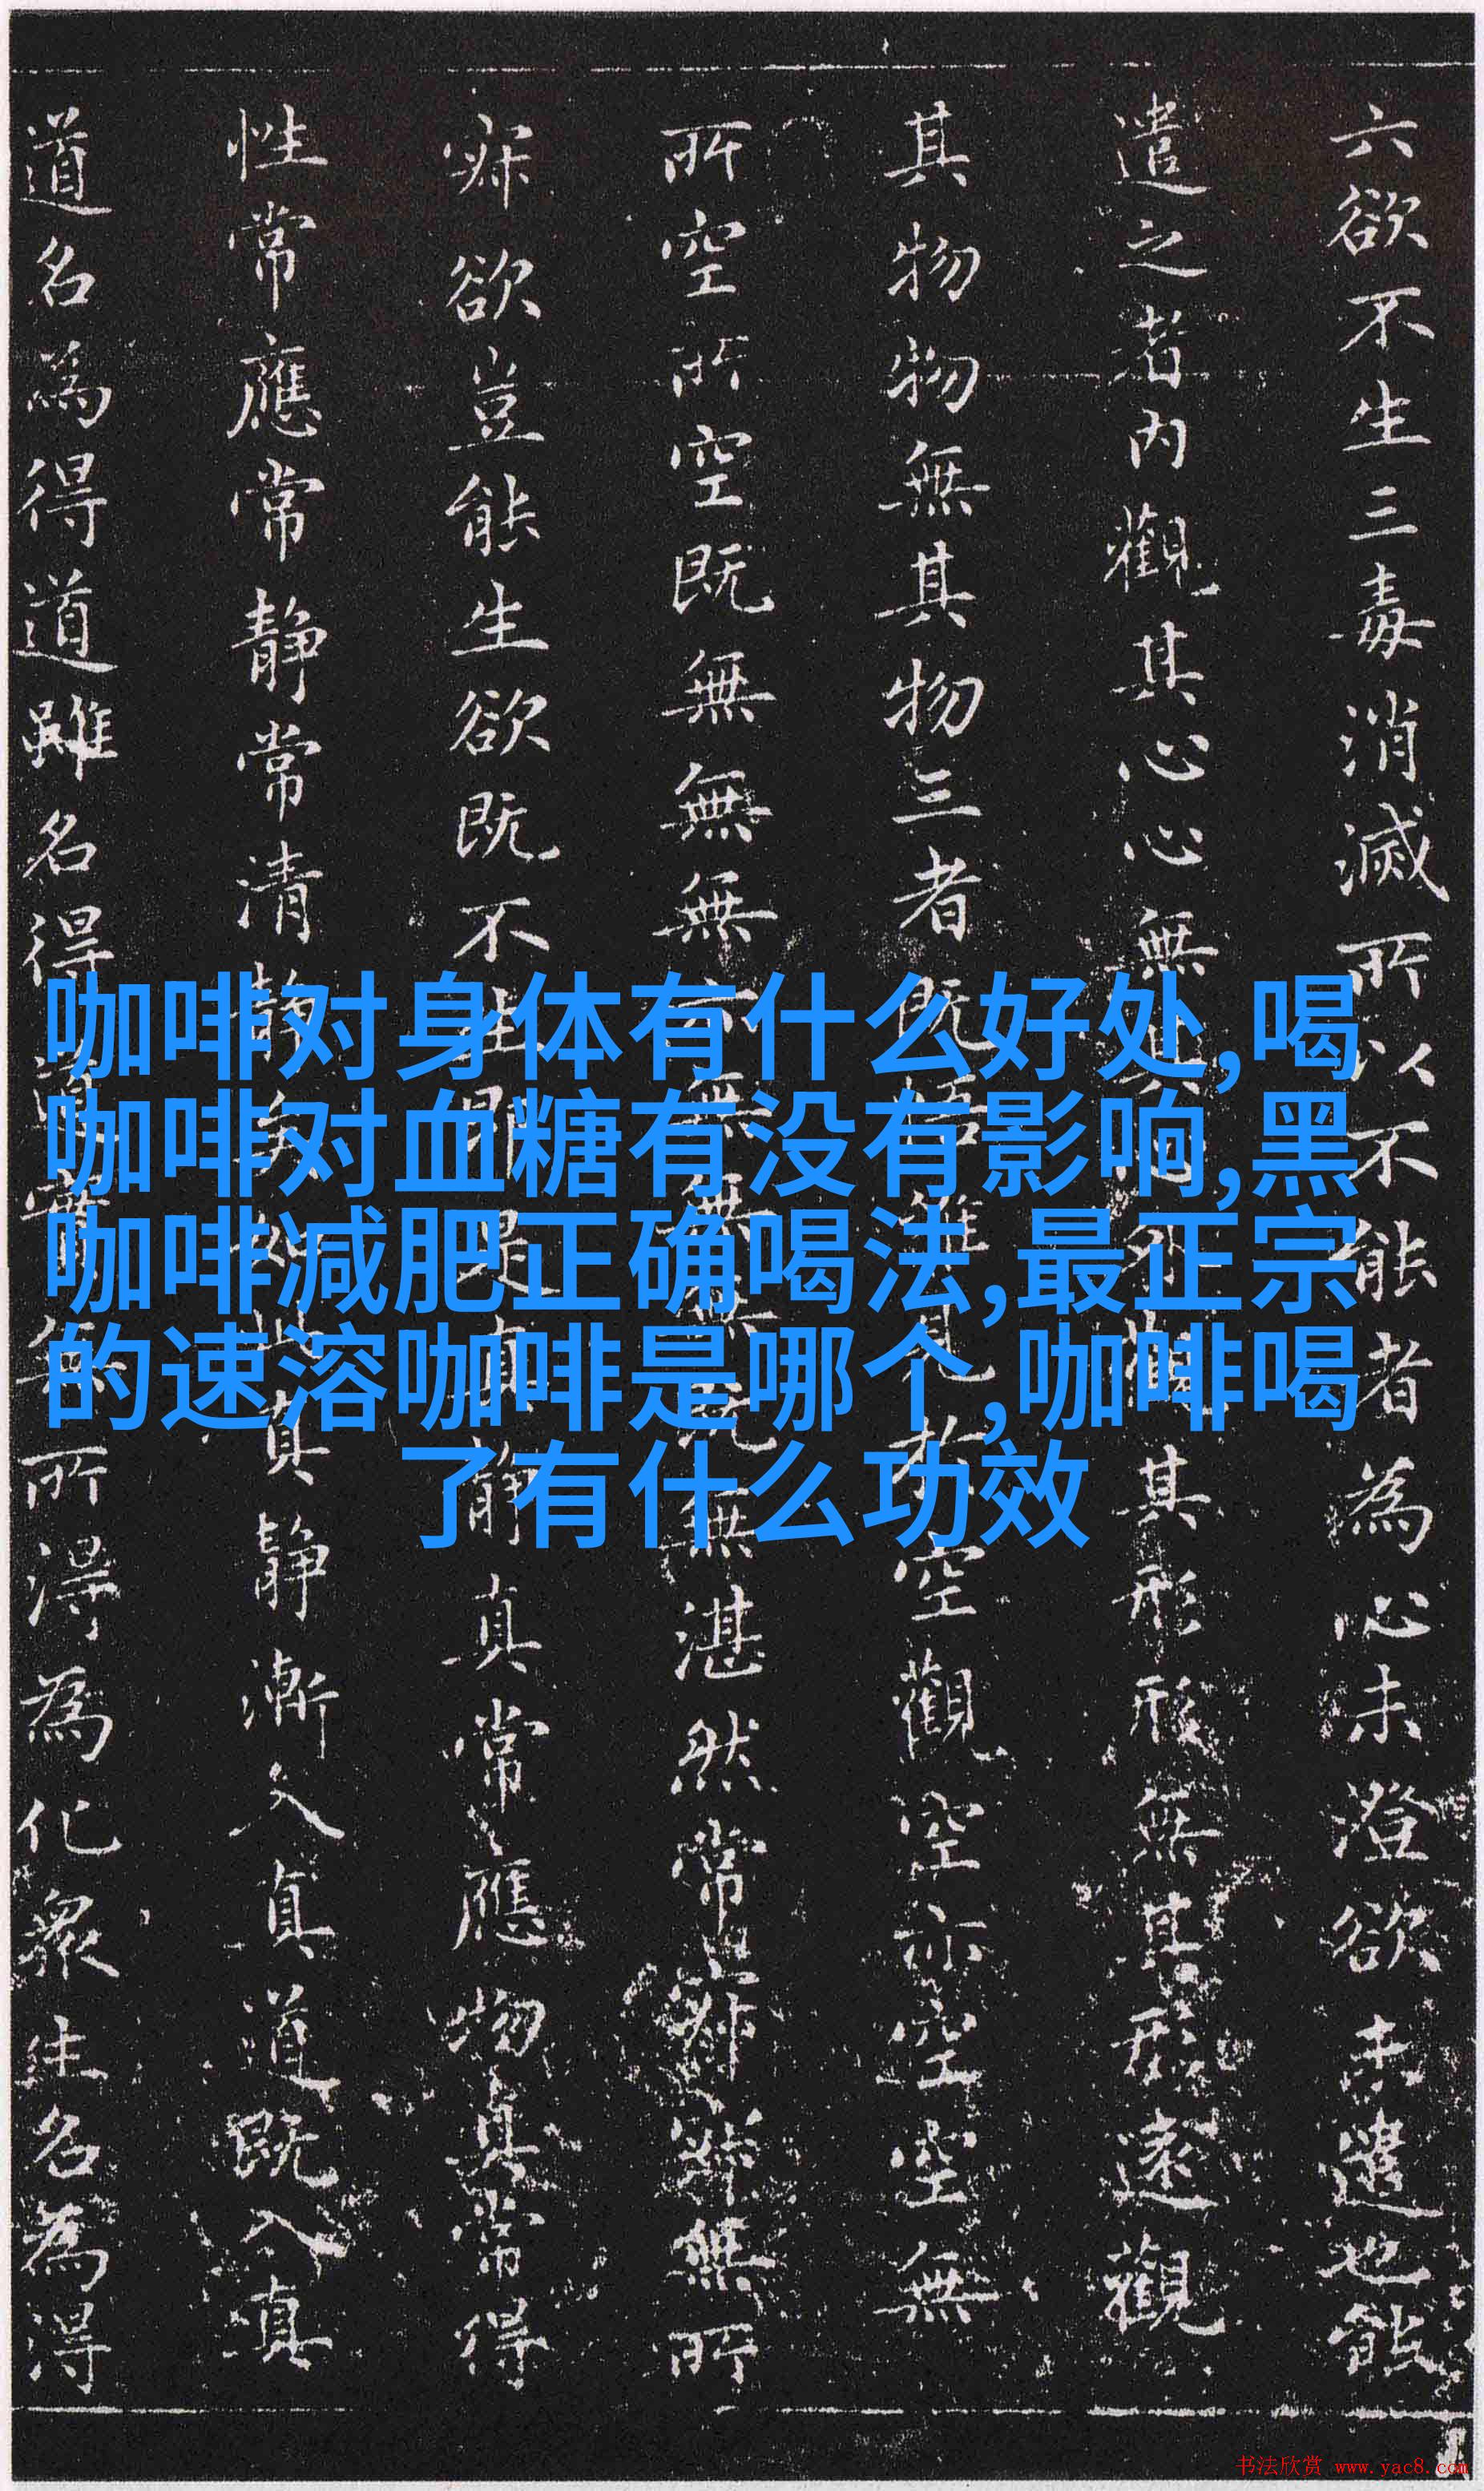 六欲不生三毒消滅所以不能者為心未澄欲未遣也能
遣之者內觀其心心無其心外觀其形形無其形遠觀
其物物無其物三者既悟唯見於空觀空亦空空無
所空所空既無無無亦無無無既無湛然常寂寂無所
寂欲豈能生欲既不生即是真静真常應物真常得
性常應常静常清静矣如此真静漸入真道既入真
道名為得道雖名得道實無所得為化衆生名為得
咖啡对身体有什么好处,喝
咖啡对血糖有没有影响,黑
咖啡减肥正确喝法,最正宗
的速溶咖啡是哪个,咖啡喝
了有什么功效
书法欣赏 www.yac8.com